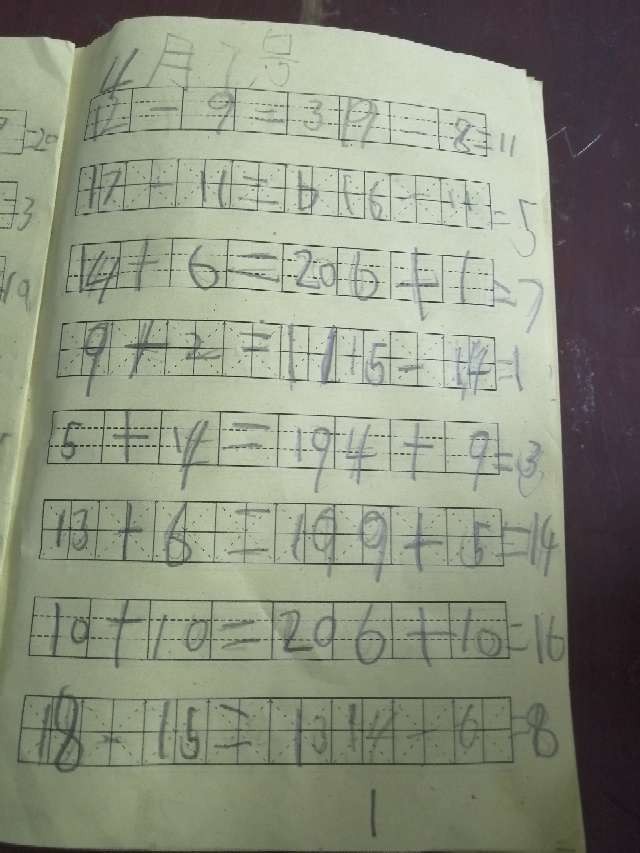 4月7号
12-9=3 19-8=11
17-11=6 16-11=5
14+6=20 6+1=7
9+2=11 15-14=1
5+14=19 4+9=3
13+6=19 9+5=14
10+10=20 6+10=16
18-15=13 14-6=8
1
20
3
19